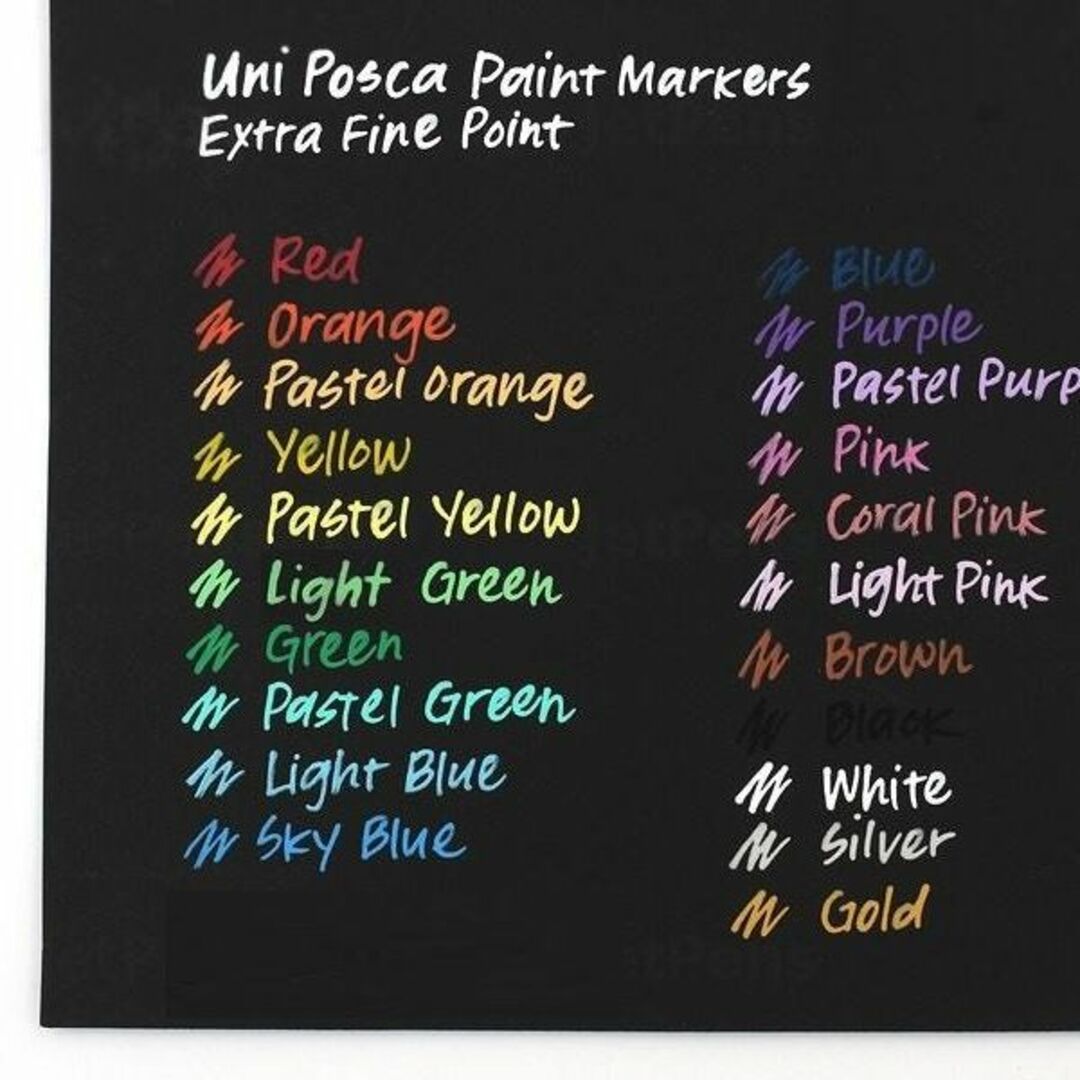 Uni Posca Paint Markers
Extra Fine Point
Red
Orange
Pastel Orange
Yellow
Pastel Yellow
Light Green
Green
Pastel Green
Light Blue
Sky Blue
Blue
Purple
Pastel Purp
Pink
Coral Pink
Light Pink
Brown
Black
White
Silver
Gold